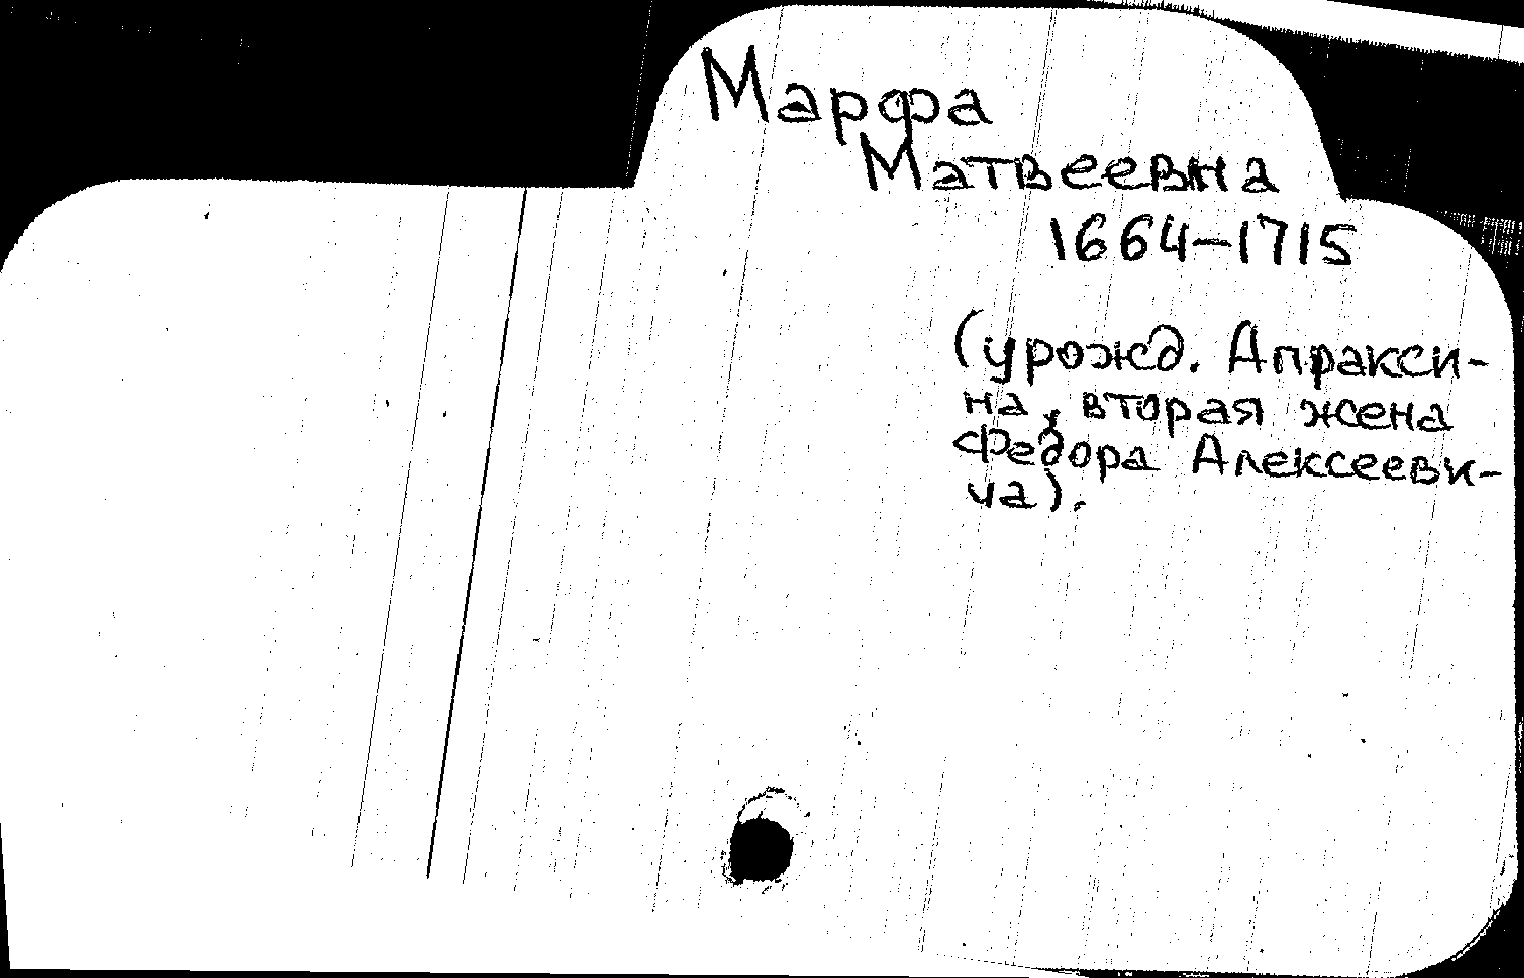 Марфа
Матвеевна
1664-1715
(урожд. Апракси-
на, вторая жена
Федора Алексееви-
ча).